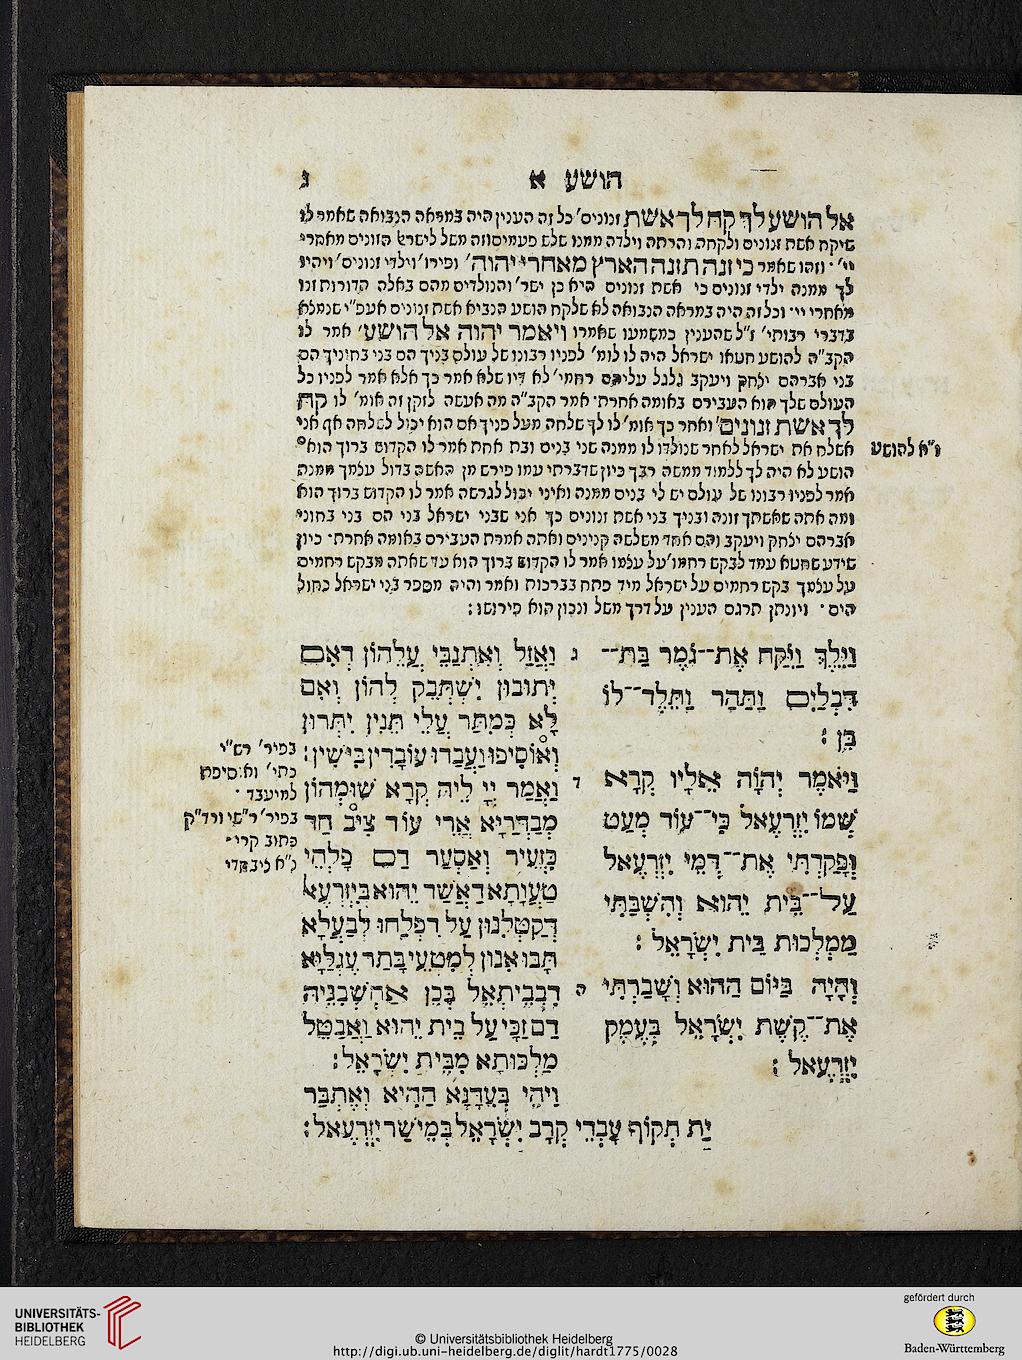 הושע א
ג
אל הושע לך קח לך אשת זנונים' כל זה הענין היה במראה הנבואה שאמר לו
שיקח אשת זנונים ולקחה והרתה וילדה ממנו שלש פעמים וזה משל לישר' הזונים מאחרי
יי' · וזהו שאמר כי זנה תזנה הארץ מאחרי יהוה' ופירו' וילדי זנונים' ויהיו
לך ממנה ילדי זנונים כי אשת זנונים היא כן ישר' והנולדים מהם באלה הדורות זנו
מאחרי יי' וכל זה היה במראה הנבואה לא שלקח הושע הנביא אשת זנונים אעפ"י שנמצא
בדברי רבותי' ז"ל שהענין כמשמעו שאמרו ויאמר יהוה אל הושע' אמר לו
הקב"ה להושע חטאו ישראל היה לו לומ' לפניו רבונו של עולם בניך הם בני בחוניך הם
בני אברהם יצחק ויעקב גלגל עליהם רחמי' לא דיו שלא אמר כך אלא אמר לפניו כל
העולם שלך הוא העבירם באומה אחרת' אמר הקב"ה מה אעשה לזקן זה אומ' לו קח
לך אשת זנונים' ואחר כך אומ' לו לך שלחה מעל פניך אם הוא יכול לשלחה אף אני
אשלח את ישראל לאחר שנולדו לו ממנה שני בנים ובת אחת אמר לו הקדוש ברוך הוא
נ"א להושע
הושע לא היה לך ללמוד ממשה רבך כיון שדברתי עמו פירש מן האשה בדול עצמך ממנה
אמר לפניו רבונו של עולם יש לי בנים ממנה ואיני יכול לגרשה אמר לו הקדוש ברוך הוא
ומה אתה שאשתך זונה ובניך בני אשת זנונים כך אני שבני ישראל בני הם בני בחוני
אברהם יצחק ויעקב והם אחד משלשה קנינים ואתה אמרת העבירם באומה אחרת' כיון
שידע שחטא עמד לבקש רחמו' על עצמו אמר לו הקדוש ברוך הוא עד שאתה מבקש רחמים
על עצמך בקש רחמים על ישראל מיד פתח בברכות ואמר והיה מספר בני ישראל כחול
הים · ויונתן תרגם הענין על דרך משל ונכון הוא פירושו :
ג וַיֵּלֶךְ וַיִּקַּח אֶת־־גֹּמֶר בַּת־־
דִּבְלָיִם וַתַּהַר וַתֵּלֶד־־לוֹ
בֵּן :
ד וַיֹּאמֶר יְהוָֹה אֵלָיו קְרָא
שְׁמוֹ יִזְרְעֶאל כִּי־־עוֹד מְעַט
וּפָקַדְתִּי אֶת־־דְּמֵי יִזְרְעֶאל
עַל־־בֵּית יֵהוּא וְהִשְׁבַּתִּי
מַמְלְכוּת בֵּית יִשְׂרָאֵל :
ה וְהָיָה בַּיּוֹם הַהוּא וְשָׁבַרְתִּי
אֶת־־קֶשֶׁת יִשְׂרָאֵל בְּעֵמֶק
יִזְרְעֶאל :
וַאֲזַל וְאִתְנַבֵּי עֲלֵהוֹן דְּאִם
יְתוּבוּן יִשְׁתְּבֵק לְהוֹן וְאִם
לָא כְּמִתַּר עֲלֵי תֵּנִין יִתְּרוּן
וְאוֹסִיפוּ וַעֲבַדוּ עוֹבָדִין בִּישִׁין :
וַאֲמַר יְיָ לֵיהּ קְרָא שׁוּמְהוֹן
מְבַדְּרַיָּא אֲרֵי עוֹד צִיב חַד
כִּזְעֵיר וְאַסְעַר דַּם פָּלְחֵי
טַעֲוָתָא דַּאֲשַׁד יֵהוּא בְּיִזְרְעֶאל
דְּקַטְלִנּוּן עַל דִּפְלַחוּ לְבַעֲלָא
תָּבוּ אִנּוּן לְמִטְעֵי בָּתַר עֶגְלַיָּא
דִּבְבֵיתְאֵל בְּכֵן אַחְשְׁבִנֵּיהּ
דַּם זַכַּי עַל בֵּית יֵהוּא וַאֲבַטֵּל
מַלְכוּתָא מִבֵּית יִשְׂרָאֵל :
וִיהֵי בְּעִדָּנָא הַהִיא וְאֶתְבַּר
יַת תְּקוֹף עָבְדֵי קְרָב יִשְׂרָאֵל בְּמֵישַׁר יִזְרְעֶאל :
בפיר' רש"י
כתי' ואוסיפת
למיעבד ·
בפיר' רש"י ורד"ק
כתוב קרי
UNIVERSITÄTS-
BIBLIOTHEK
HEIDELBERG
© Universitätsbibliothek Heidelberg
http://digi.ub.uni-heidelberg.de/diglit/hardt1775/0028
gefördert durch
Baden-Württemberg